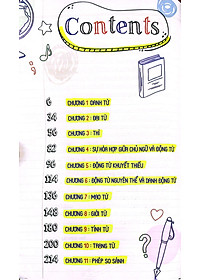 Contents
6 CHƯƠNG 1 DANH TỪ
34 CHƯƠNG 2 : ĐẠI TỪ
56 CHƯƠNG 3 : THÌ
82 CHƯƠNG 4 : SỰ HÒA HỢP GIỮA CHỦ NGỮ VÀ ĐỘNG TỪ
96 CHƯƠNG 5 : ĐỘNG TỪ KHUYẾT THIẾU
114 CHƯƠNG 6 : ĐỘNG TỪ NGUYÊN THỂ VÀ DANH ĐỘNG TỪ
136 CHƯƠNG 7 : MẠO TỪ
148 CHƯƠNG 8 : GIỚI TỪ
180 CHƯƠNG 9 : TÍNH TỪ
200 CHƯƠNG 10 : TRẠNG TỪ
214 CHƯƠNG 11 : PHÉP SO SÁNH